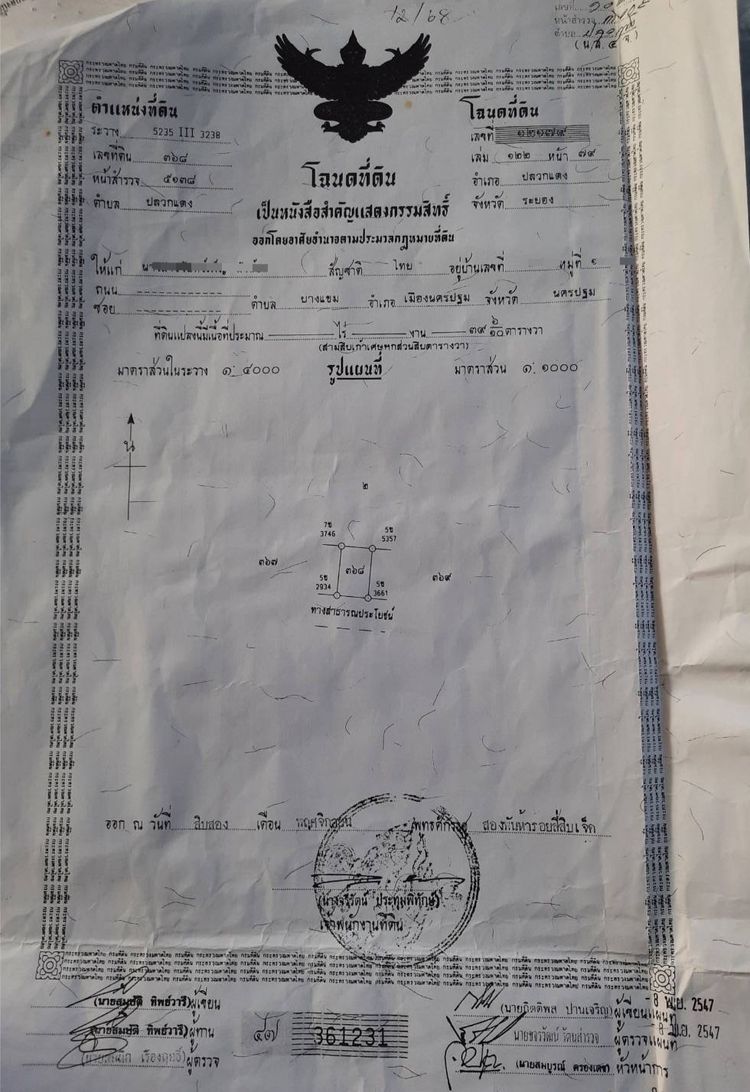 12/68
(น.ส. ๔ จ.)
ตำแหน่งที่ดิน
ระวาง 5235 III 3238
เลขที่ดิน ๓๖๘
หน้าสำรวจ ๕๑๓๘
ตำบล ปลวกแดง
โฉนดที่ดิน
เลขที่ ๑๒๑๗๙
เล่ม ๑๒๒ หน้า ๗๙
อำเภอ ปลวกแดง
จังหวัด ระยอง
โฉนดที่ดิน
เป็นหนังสือสำคัญแสดงกรรมสิทธิ์
ออกโดยอาศัยอำนาจตามประมวลกฎหมายที่ดิน
ให้แก่ สัญชาติ ไทย อยู่บ้านเลขที่ หมู่ที่ ๑
ถนน
ซอย ตำบล บางแขม อำเภอ เมืองนครปฐม จังหวัด นครปฐม
ที่ดินแปลงนี้มีเนื้อที่ประมาณ ไร่ งาน ๓๙ ๖/๑๐ ตารางวา
(สามสิบเก้าเศษหกส่วนสิบตารางวา)
มาตราส่วนในระวาง ๑:๔๐๐๐ รูปแผนที่ มาตราส่วน ๑:๑๐๐๐
น
๒
7ข 3746
5ข 5357
๓๖๗ ๓๖๘ ๓๖๙
5ข 2934
5ข 3661
ทางสาธารณประโยชน์
ออก ณ วันที่ สิบสอง เดือน พฤศจิกายน พุทธศักราช สองพันห้าร้อยสี่สิบเจ็ด
(นางจรีรัตน์ ประทุมพิทักษ์)
เจ้าพนักงานที่ดิน
(นายสมบัติ ทิพย์วารี) ผู้เขียน
(นายสมบัติ ทิพย์วารี) ผู้ทาน
ผู้ตรวจ
๔๗ 361231
(นายกิตติพล ปานเจริญ) ผู้เขียนแผนที่ 8 พ.ย. 2547
นายขจรวัฒน์ รัตนสำรวจ ผู้ตรวจแผนที่ 8 พ.ย. 2547
(นายสมบูรณ์ ครองเดช) หัวหน้าการ